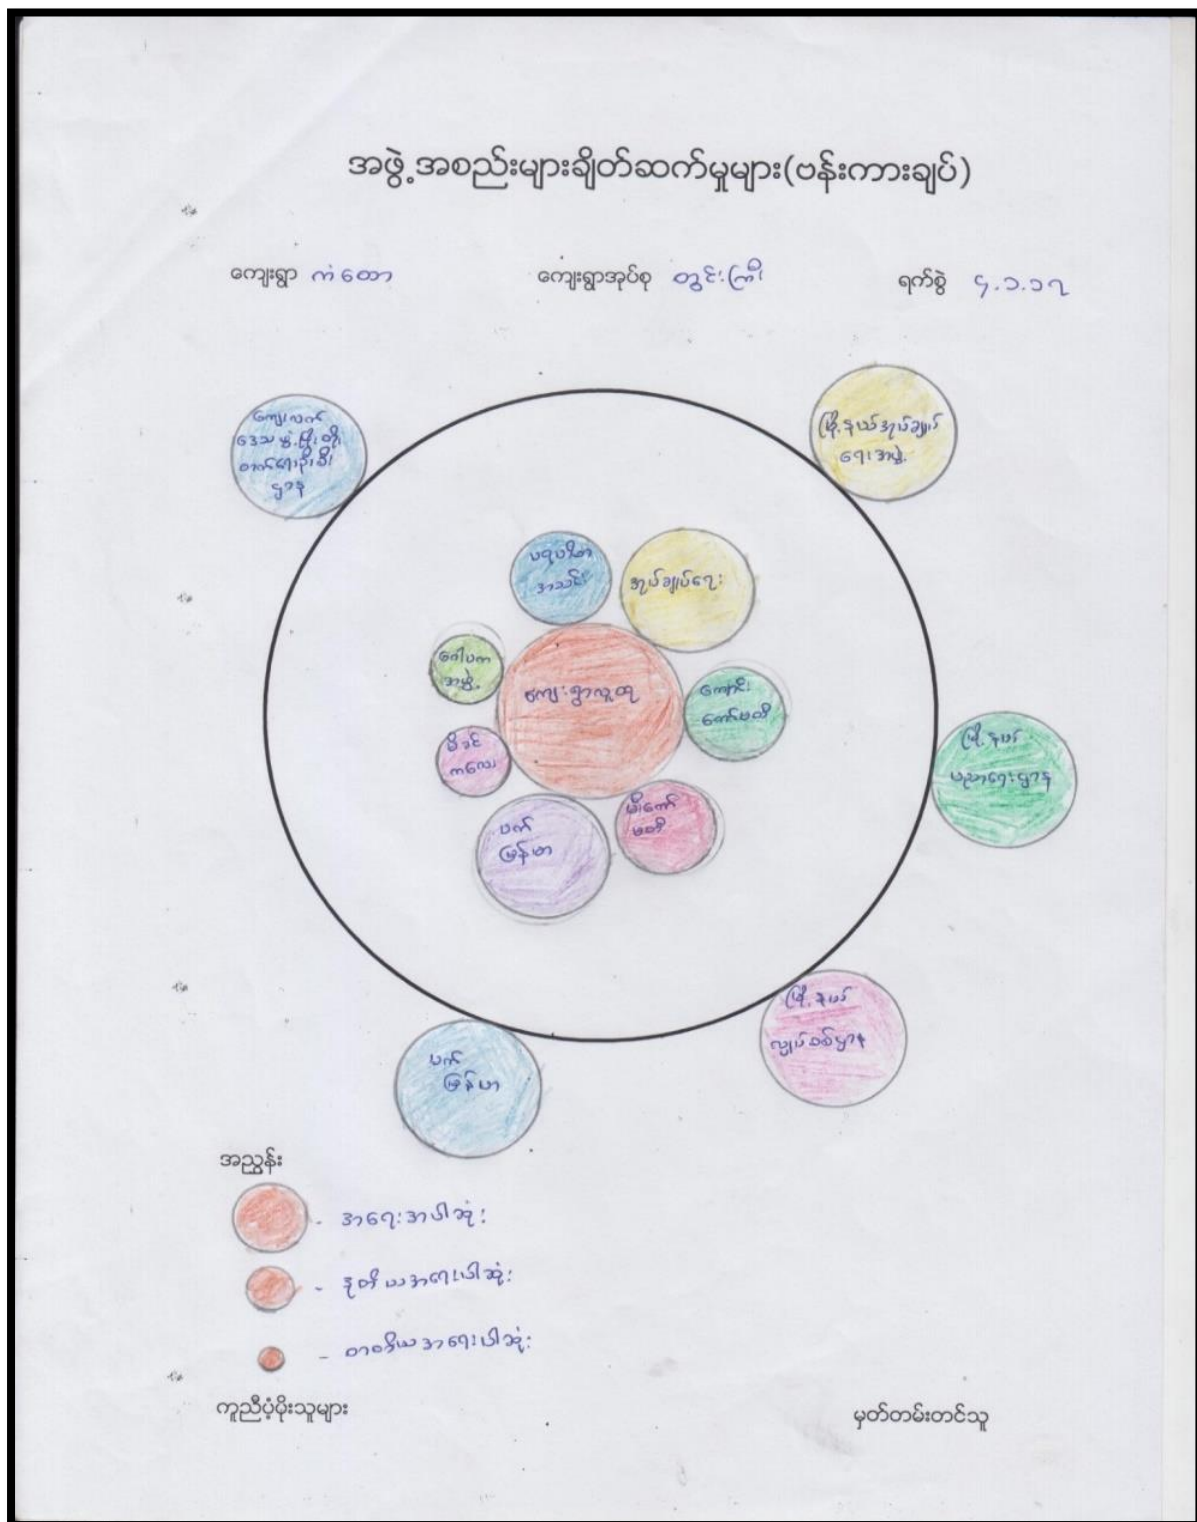 အဖွဲ့အစည်းများချိတ်ဆက်မှုများ(ဗန်းကားချပ်)
ကျေးရွာ ကံထော ကျေးရွာအုပ်စု တွင်းကြီး ရက်စွဲ ၄.၁.၁၇
ကျေးလက်
ဒေသဖွံ့ဖြိုးတိုး
တက်ရေးဦးစီး
ဌာန
မြို့နယ်အုပ်ချုပ်
ရေးအဖွဲ့
ပရဟိတ
အသင်း
အုပ်ချုပ်ရေး
ဂေါပက
အဖွဲ့
ကျေးရွာလူထု
ကျောင်း
ကော်မတီ
မိခင်
ကလေး
ပက်
မြန်မာ
မီးကော်
မတီ
မြို့နယ်
ပညာရေးဌာန
မြို့နယ်
လျှပ်စစ်ဌာန
ပက်
မြန်မာ
အညွှန်း
- အရေးအပါဆုံး
- ဒုတိယအရေးပါဆုံး
- တတိယအရေးပါဆုံး
ကူညီပံ့ပိုးသူများ မှတ်တမ်းတင်သူ